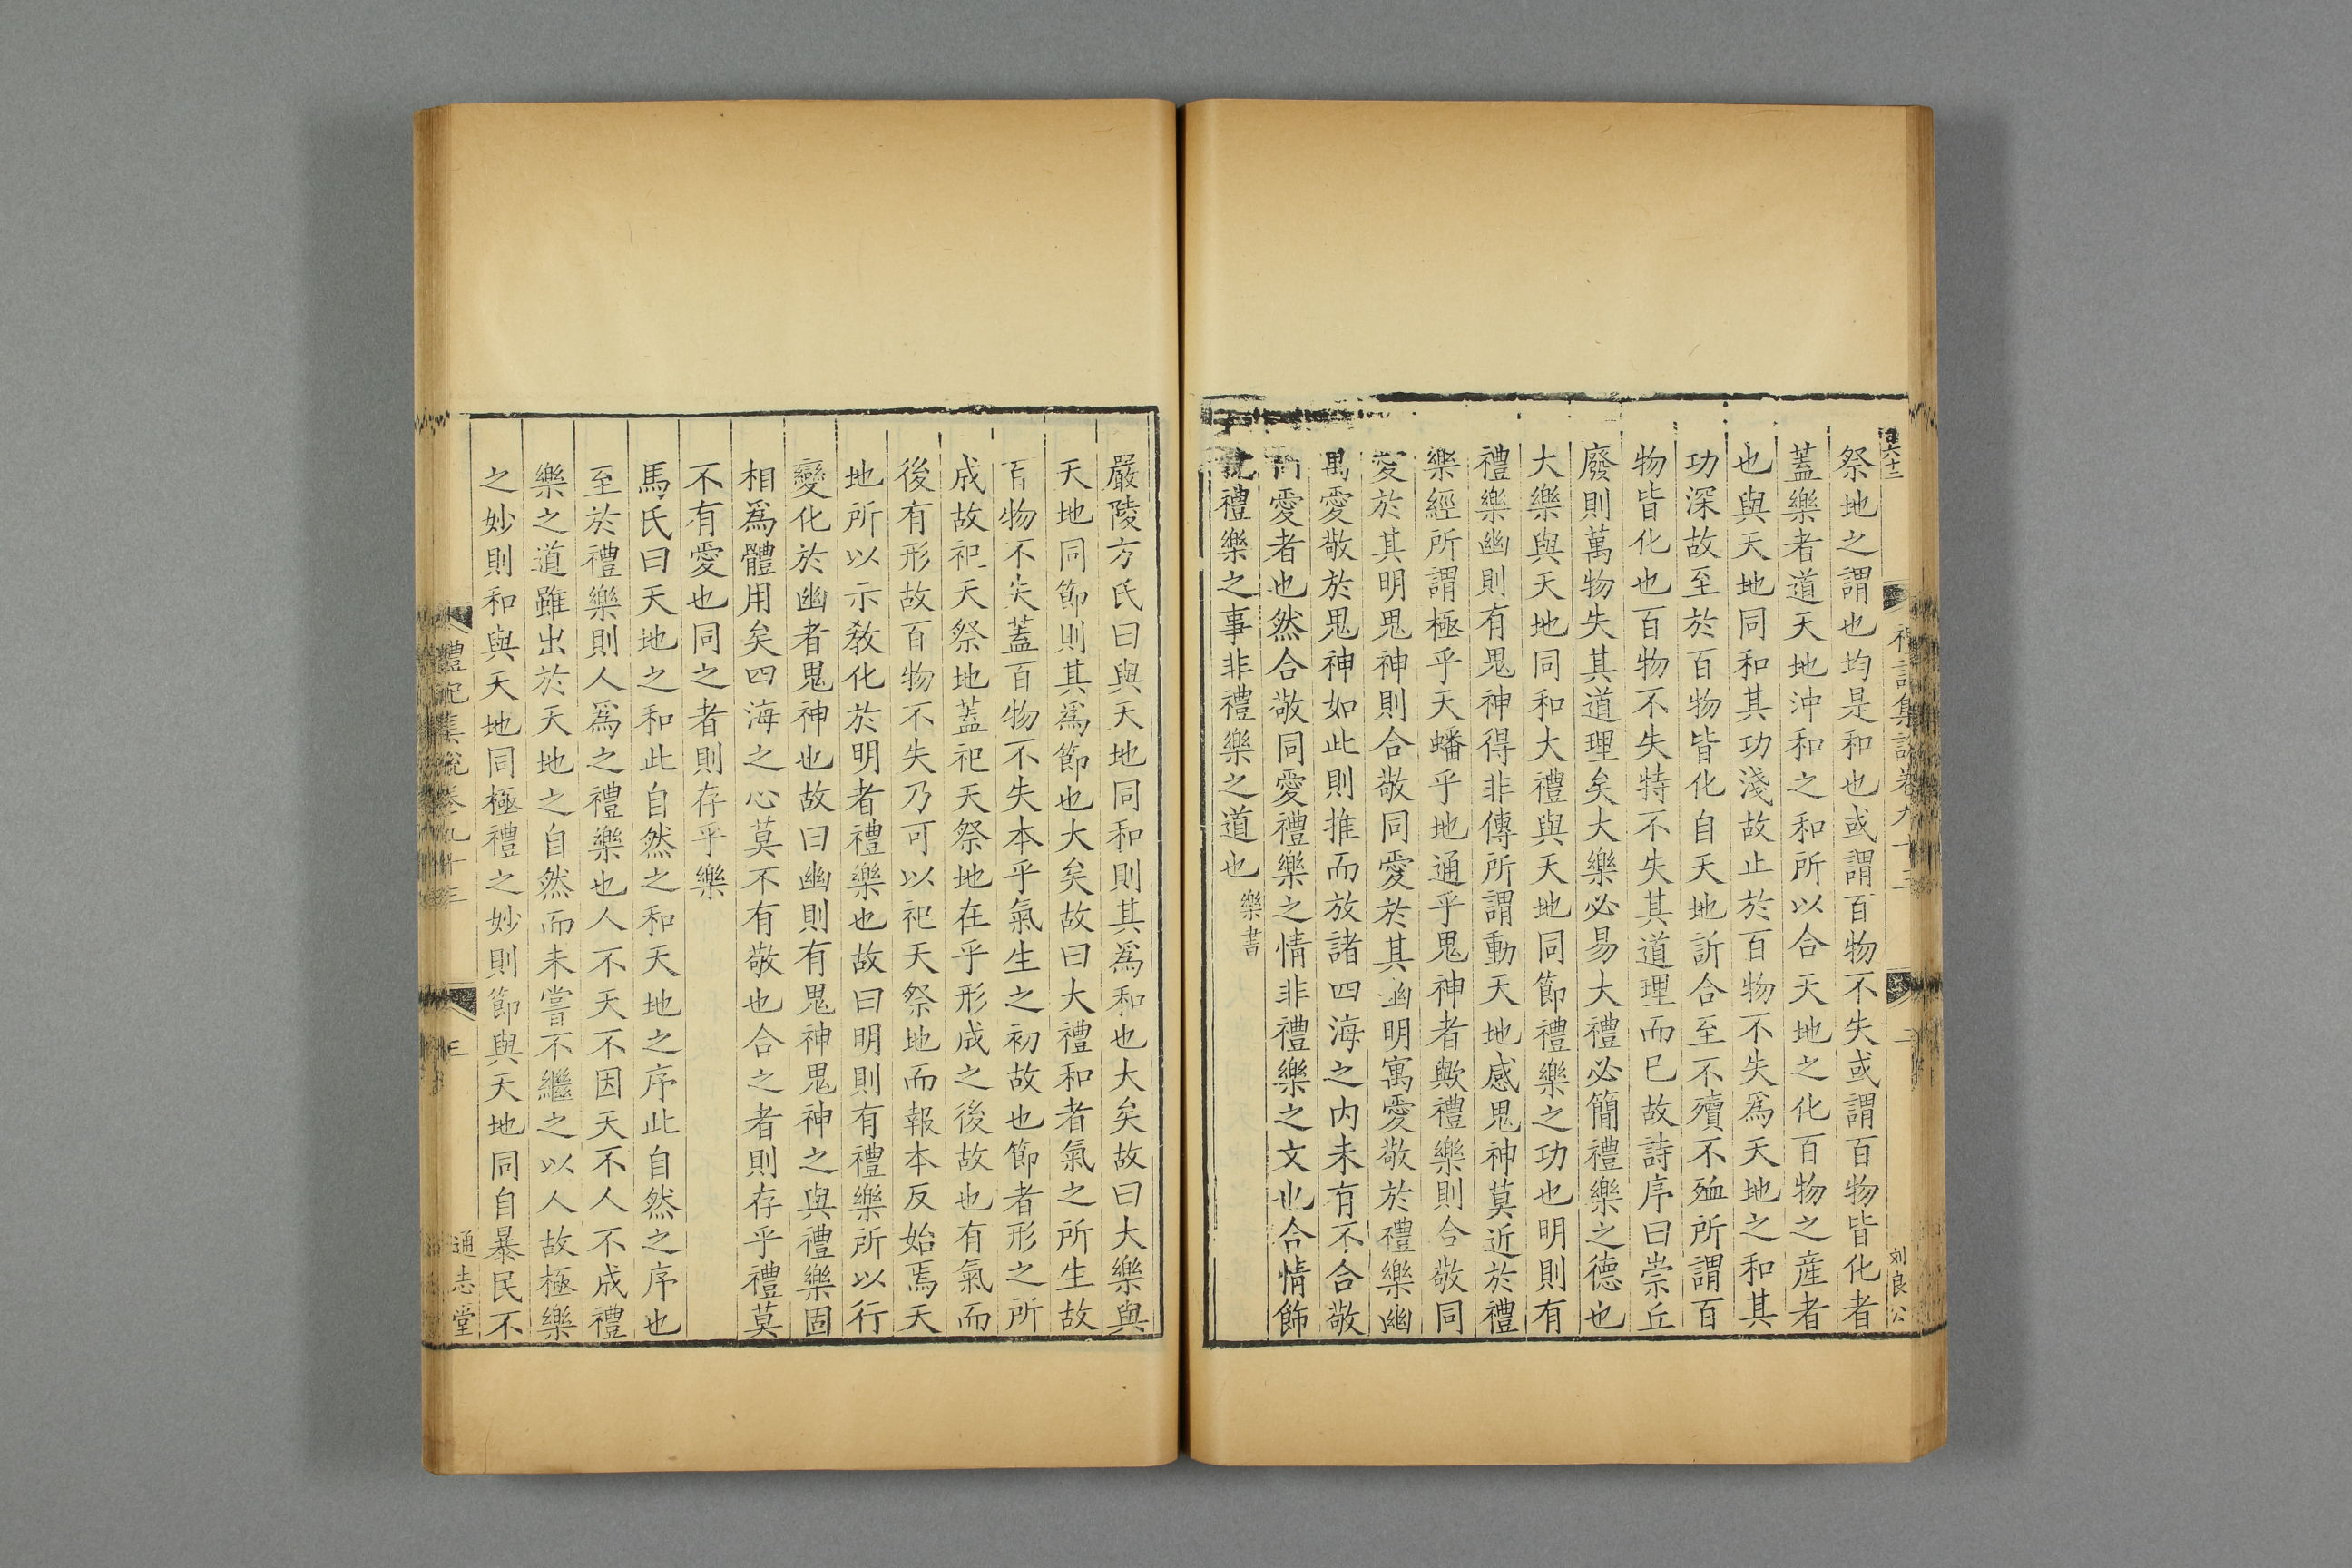 祭地之謂也均是和也或謂百物不失或謂百物皆化者
蓋樂者道天地沖和之和所以合天地之化百物之產者
也與天地同和其功淺故止於百物不失爲天地之和其
功深故至於百物皆化自天地訢合至不殰不殈所謂百
物皆化也百物不失特不失其道理而已故詩序曰崇丘
廢則萬物失其道理矣大樂必易大禮必簡禮樂之德也
大樂與天地同和大禮與天地同節禮樂之功也明則有
禮樂幽則有鬼神得非傳所謂動天地感鬼神莫近於禮
樂經所謂極乎天蟠乎地通乎鬼神者歟禮樂則合敬同
愛於其明鬼神則合敬同愛於其幽明寓愛敬於禮樂幽
寓愛敬於鬼神如此則推而放諸四海之内未有不合敬
同愛者也然合敬同愛禮樂之情非禮樂之文也合情飾
貌禮樂之事非禮樂之道也樂書
刘良公
嚴陵方氏曰與天地同和則其爲和也大矣故曰大樂與
天地同節則其爲節也大矣故曰大禮和者氣之所生故
百物不失蓋百物不失本乎氣生之初故也節者形之所
成故祀天祭地蓋祀天祭地在乎形成之後故也有氣而
後有形故百物不失乃可以祀天祭地而報本反始焉天
地所以示敎化於明者禮樂也故曰明則有禮樂所以行
變化於幽者鬼神也故曰幽則有鬼神鬼神之與禮樂固
相爲體用矣四海之心莫不有敬也合之者則存乎禮莫
不有愛也同之者則存乎樂
馬氏曰天地之和此自然之和天地之序此自然之序也
至於禮樂則人爲之禮樂也人不天不因天不人不成禮
樂之道雖出於天地之自然而未嘗不繼之以人故極樂
之妙則和與天地同極禮之妙則節與天地同自暴民不
禮記集說卷九十三
三
通志堂